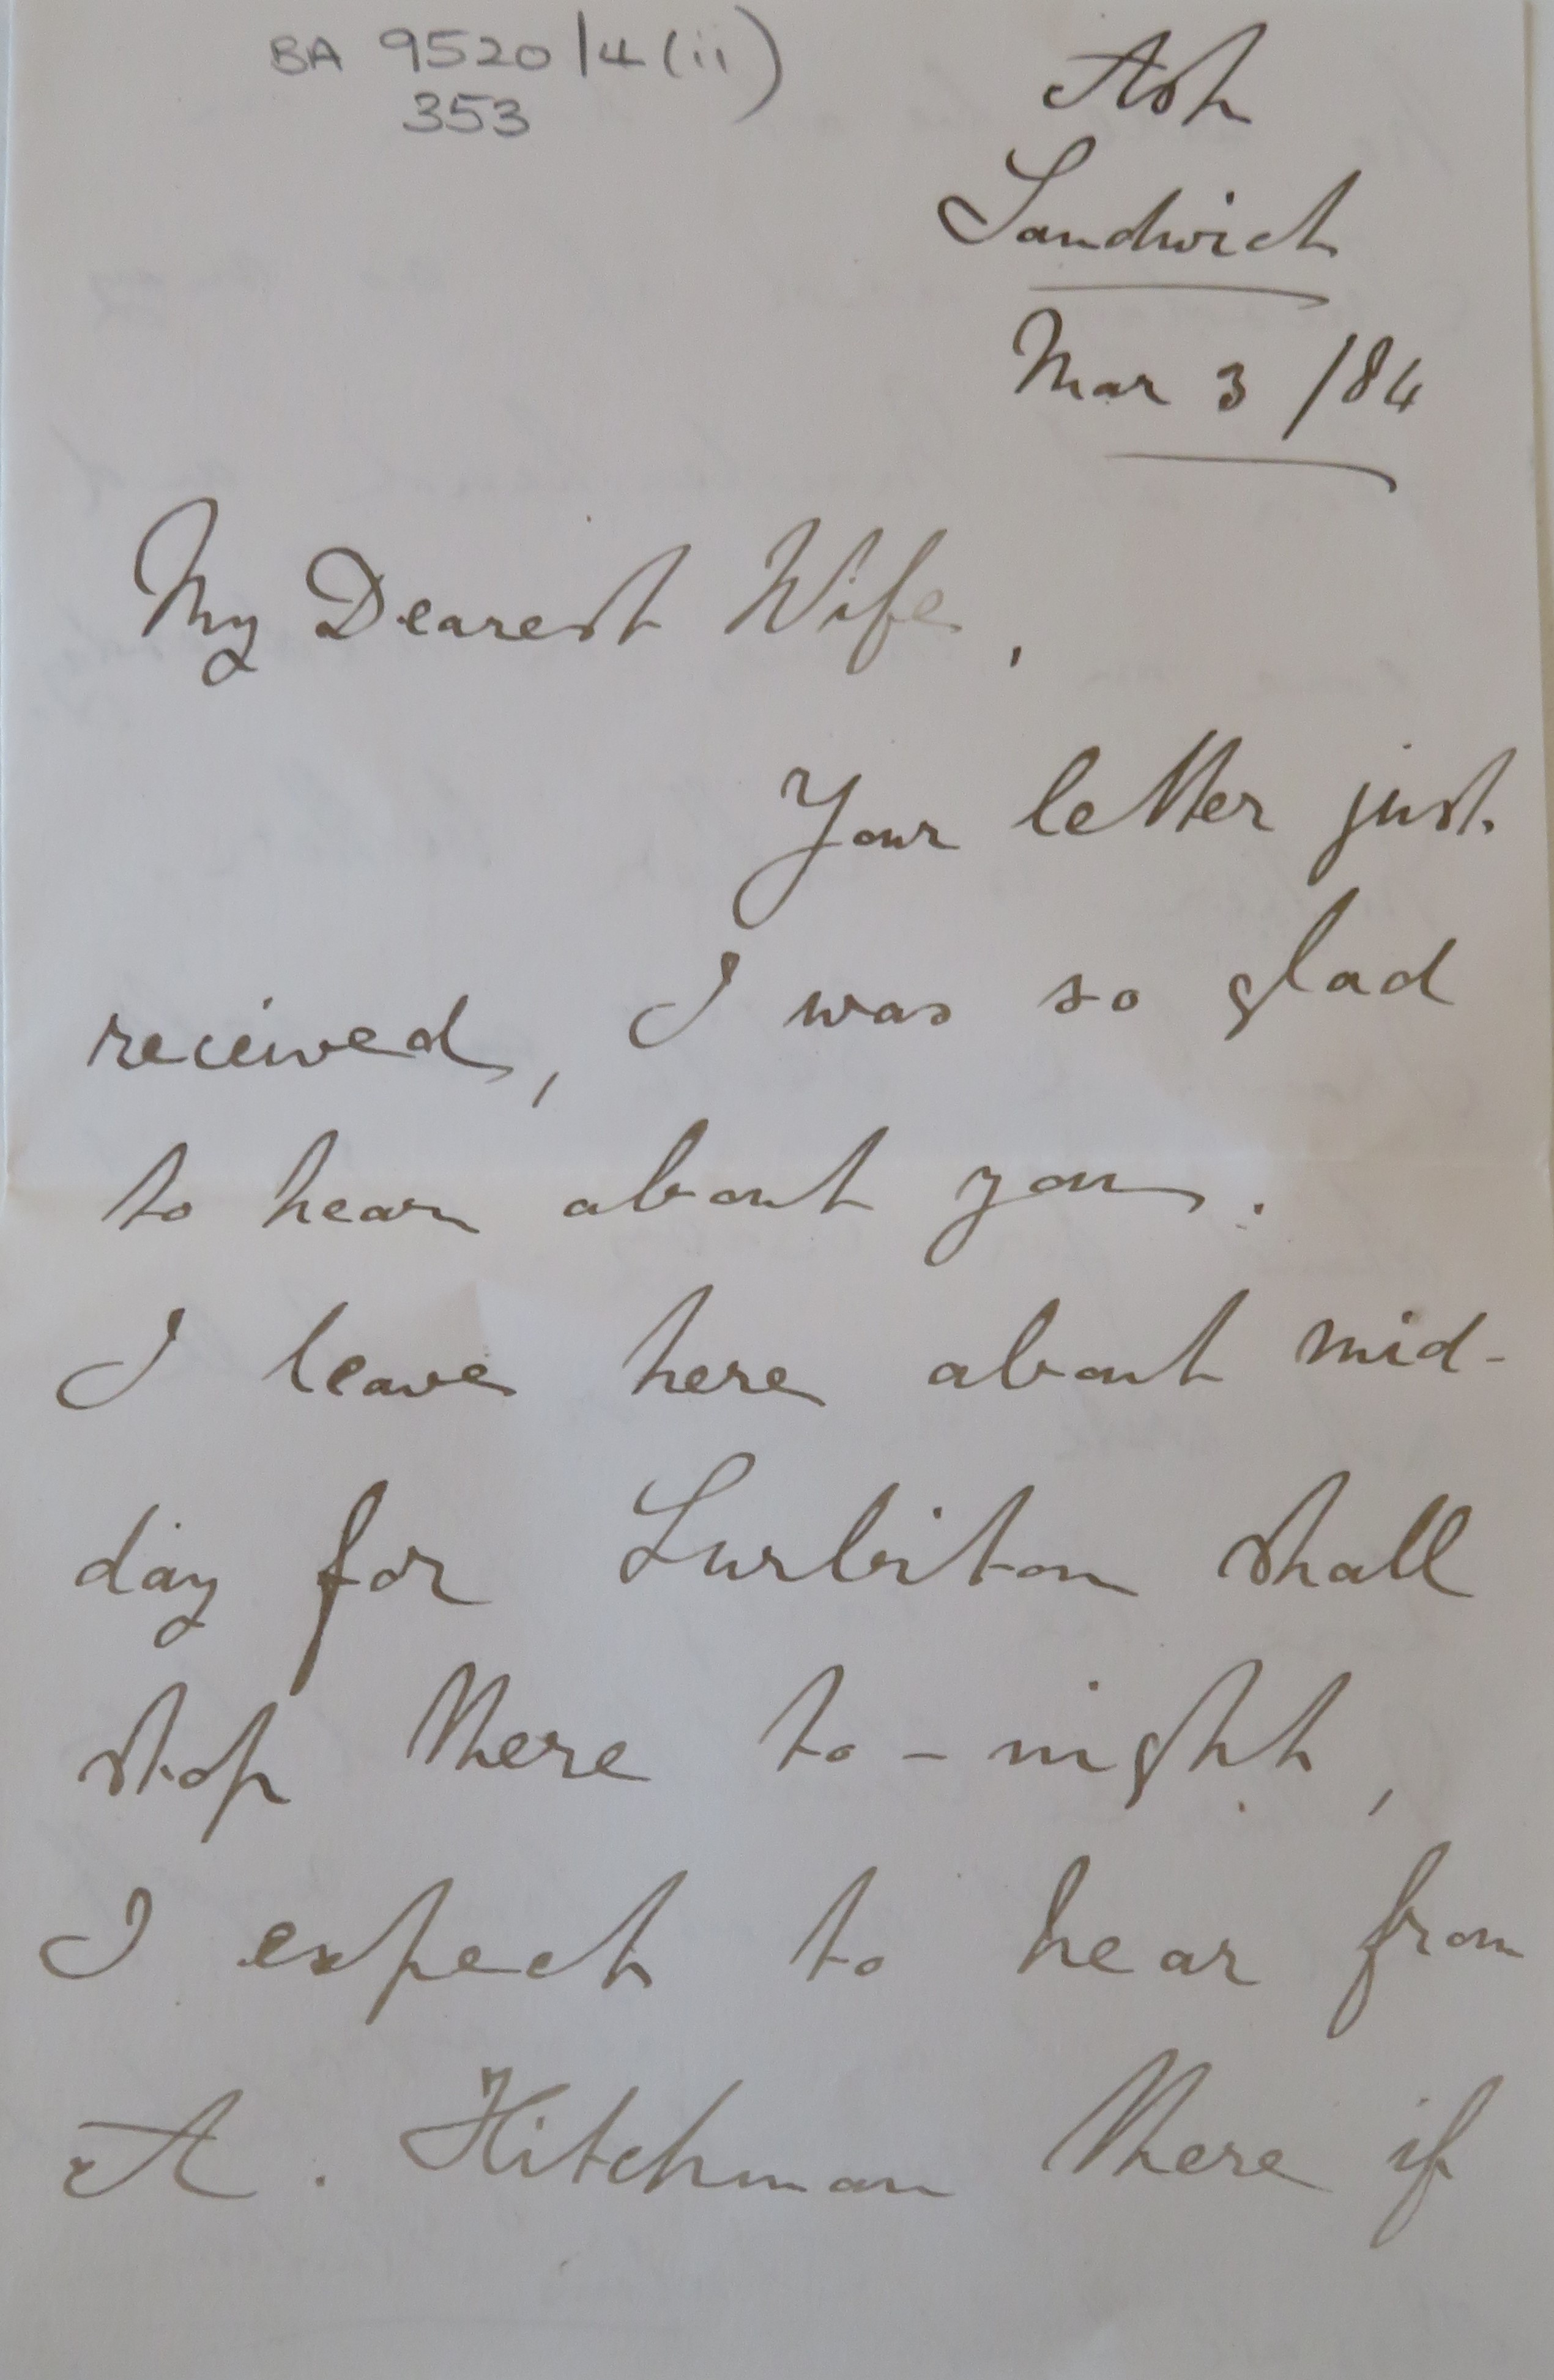 BA 9520/4(ii)
353
Ash
Sandwich
Mar 3 /84
My Dearest Wife,
Your letter just
recieved, I was so glad
to hear about you.
I leave here about mid-
day for Surbiton shall
stop there to-night,
I expect to hear from
A. Hitchman there if